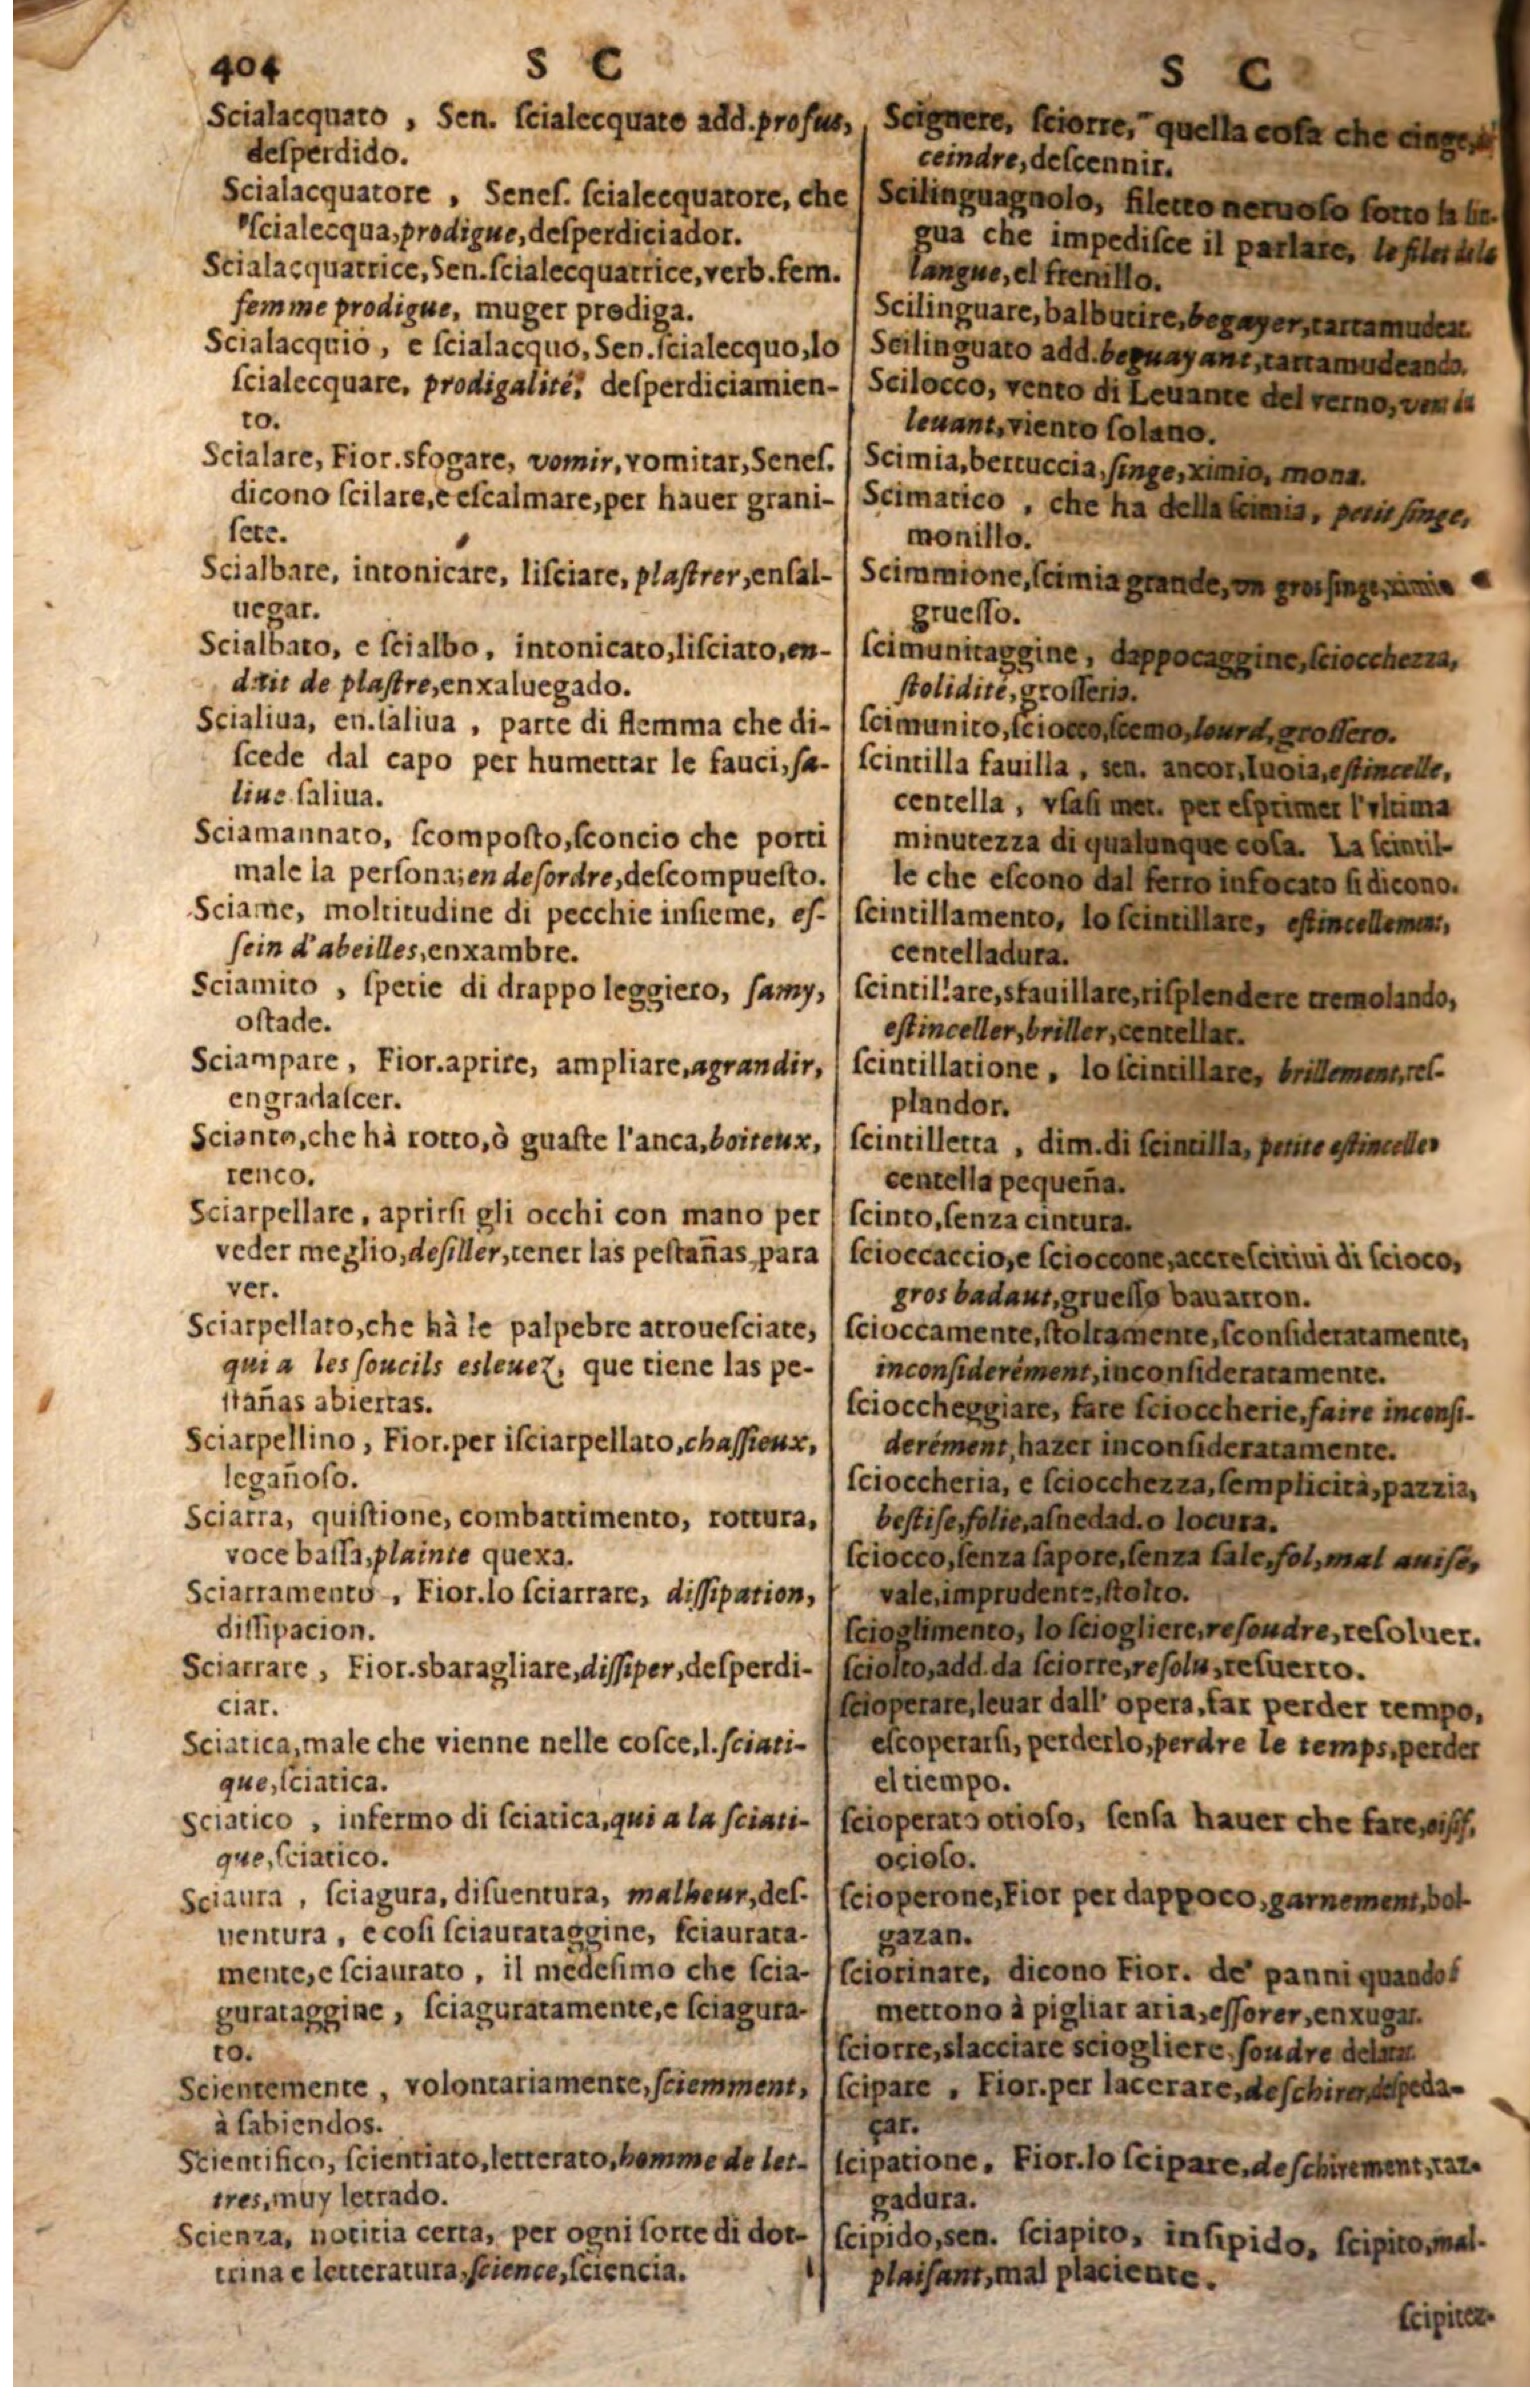 404 S C
Scialacquato , Sen. ſcialecquato add.profus,
deſperdido.
Scialacquatore , Seneſ. ſcialecquatore, che
ſcialecqua,prodigue,deſperdiciador.
Scialacquatrice,Sen.ſcialecquatrice,verb.fem.
femme prodigue, muger prodiga.
Scialacquio , e ſcialacquo,Sen.ſcialecquo,lo
ſcialecquare, prodigalité, deſperdiciamien-
to.
Scialare, Fior.sfogare, vomir,vomitar,Seneſ.
dicono ſcilare,e eſcalmare,per hauer grani-
ſete.
Scialbare, intonicare, liſciare, plaſtrer,enſal-
uegar.
Scialbato, e ſcialbo, intonicato,liſciato,en-
duit de plaſtre,enxaluegado.
Scialiua, en.ſaliua , parte di flemma che di-
ſcede dal capo per humettar le fauci,ſa-
liue ſaliua.
Sciamannato, ſcompoſto,ſconcio che porti
male la perſona;en deſordre,deſcompueſto.
Sciame, moltitudine di pecchie inſieme, eſ-
ſein d'abeilles,enxambre.
Sciamito , ſpetie di drappo leggiero, ſamy,
oſtade.
Sciampare , Fior.aprire, ampliare,agrandir,
engradaſcer.
Scianto,che hà rotto,ò guaſte l'anca,boiteux,
renco.
Sciarpellare, aprirſi gli occhi con mano per
veder meglio,deſiller,tener las peſtañas para
ver.
Sciarpellato,che hà le palpebre arroueſciate,
qui a les ſoucils esleuez, que tiene las pe-
ſtañas abiertas.
Sciarpellino , Fior.per iſciarpellato,chaſſieux,
legañoſo.
Sciarra, quiſtione, combattimento, rottura,
voce baſſa,plainte quexa.
Sciarramento , Fior.lo ſciarrare, diſſipation,
diſſipacion.
Sciarrare , Fior.sbaragliare,diſſiper,deſperdi-
ciar.
Sciatica,male che vienne nelle coſce,l.ſciati-
que,ſciatica.
Sciatico , infermo di ſciatica,qui a la ſciati-
que,ſciatico.
Sciaura , ſciagura, diſuentura, malheur,deſ-
ventura , e coſi ſciaurataggine, ſciaurata-
mente,e ſciaurato , il medeſimo che ſcia-
gurataggine , ſciaguratamente,e ſciagura-
to.
Scientemente , volontariamente,ſciemment,
à ſabiendos.
Scientifico, ſcientiato,letterato,homme de let-
tres,muy letrado.
Scienza, notitia certa, per ogni ſorte di dot-
trina e letteratura,ſcience,ſciencia.
S C
Scignere, ſciorre, quella coſa che cinge,
ceindre,deſcennir.
Scilinguagnolo, filetto neruoſo ſotto la lin-
gua che impediſce il parlare, le filet de la
langue,el frenillo.
Scilinguare,balbutire,begayer,tartamudear.
Scilinguato add.beguayant,tartamudeando.
Scilocco, vento di Leuante del verno,
leuant,viento ſolano.
Scimia,bertuccia,ſinge,ximio, mona.
Scimatico , che ha della ſcimia, petit ſinge,
monillo.
Scimmione,ſcimia grande,vn gros ſinge,ximio
grueſſo.
ſcimunitaggine, dappocaggine,ſciocchezza,
ſtolidité,groſſeria.
ſcimunito,ſciocco,ſcemo,lourd,groſſero.
ſcintilla fauilla , sen. ancor,luoia,eſtincelle,
centella , vſaſi met. per eſprimer l'vltima
minutezza di qualunque coſa. La ſcintil-
le che eſcono dal ferro infocato ſi dicono.
ſcintillamento, lo ſcintillare, eſtincellement,
centelladura.
ſcintillare,sfauillare,riſplendere tremolando,
eſtinceller,briller,centellar.
ſcintillatione, lo ſcintillare, brillement,reſ-
plandor.
ſcintilletta , dim.di ſcintilla, petite eſtincelle,
centella pequeña.
ſcinto,ſenza cintura.
ſcioccaccio,e ſcioccone,accreſcitiui di ſcioco,
gros badaut,grueſſo bauarron.
ſcioccamente,ſtoltamente,ſconſideratamente,
inconſiderément,inconſideratamente.
ſcioccheggiare, fare ſcioccherie,faire inconſi-
derément,hazer inconſideratamente.
ſcioccheria, e ſciocchezza,ſemplicità,pazzia,
beſtiſe,folie,aſnedad.o locura.
ſciocco,ſenza ſapore,ſenza ſale,fol,mal auiſé,
vale,imprudente,ſtolto.
ſcioglimento, lo ſciogliere,reſoudre,reſoluer.
ſciolto,add.da ſciorre,reſolu,reſuerto.
ſcioperare,leuar dall' opera,far perder tempo,
eſcoperarſi, perderlo,perdre le temps,perder
el tiempo.
ſcioperato otioſo, ſenſa hauer che fare,oiſif,
ocioſo.
ſcioperone,Fior per dappoco,garnement,bol-
gazan.
ſciorinare, dicono Fior. de' panni quando
mettono à pigliar aria,eſſorer,enxugar.
ſciorre,slacciare sciogliere,ſoudre delatar.
ſcipare , Fior.per lacerare,deſchirer,deſpeda-
çar.
ſcipatione, Fior.lo ſcipare,deſchirement,raz-
gadura.
ſcipido,sen. ſciapito, inſipido, ſcipito,mal-
plaiſant,mal placiente.
ſcipitez-